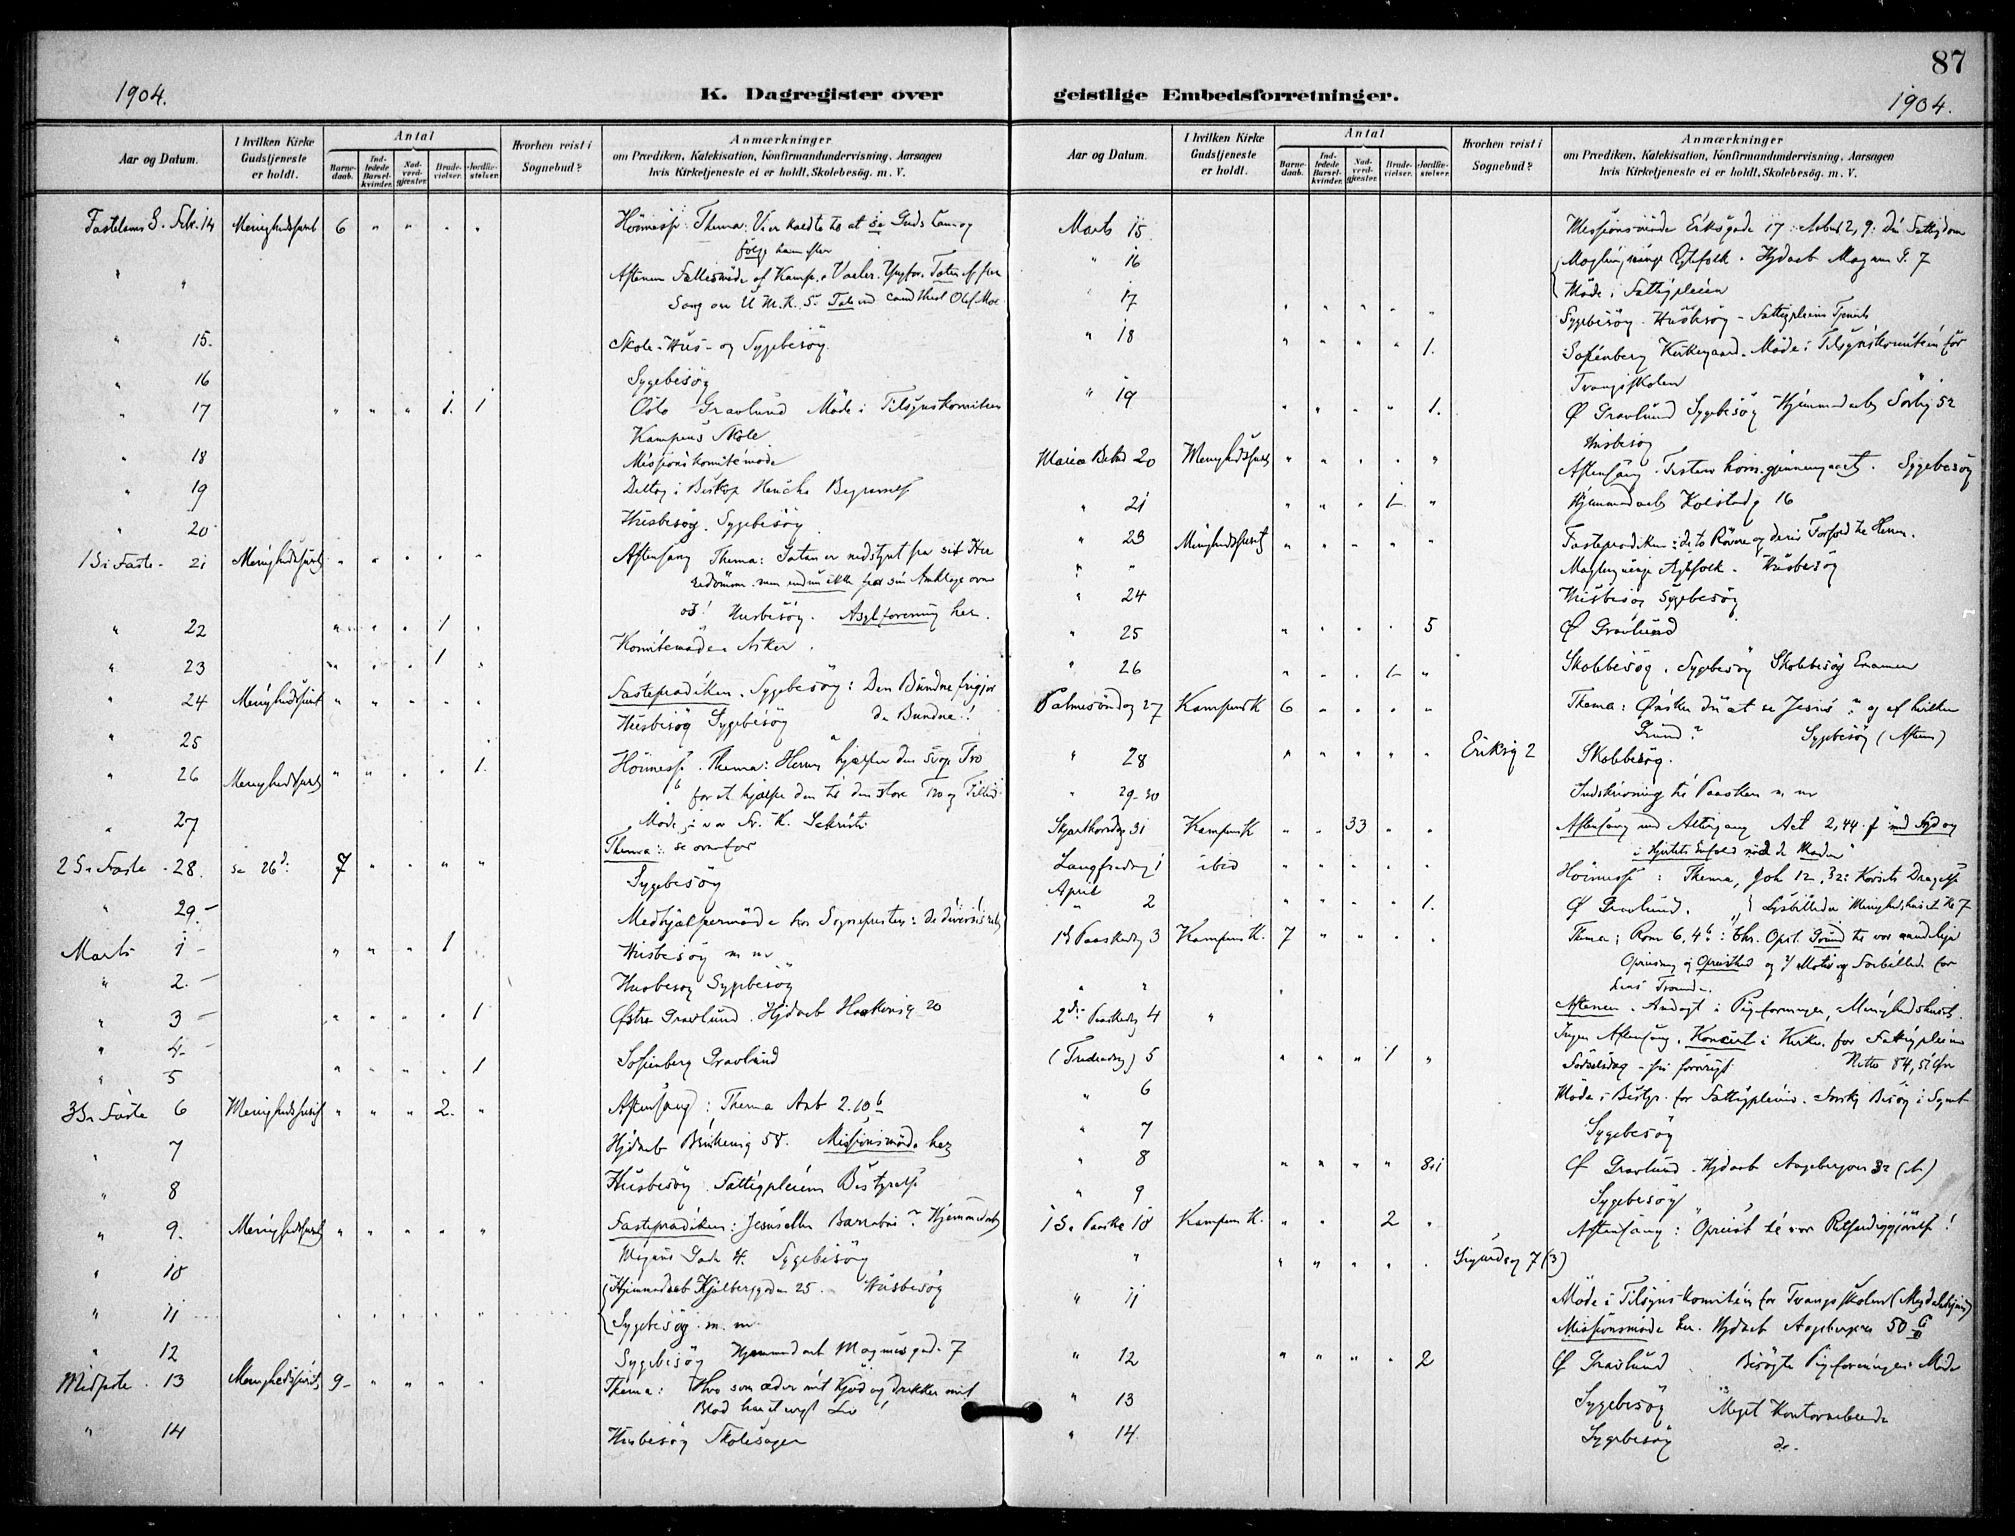 87
1904.
K. Dagregister over
geistlige Embedsforretninger.
1904.
Aar og Datum.
I hvilken Kirke Gudstjeneste er holdt.
Antal
Barnedaab.
Indledede Barselkvinder.
Nadverdgjester.
Brudevielser.
Jordfæstelser.
Hvorhen reist i Sognebud?
Anmærkninger
om Prædiken, Katekisation, Konfirmandundervisning, Aarsagen
hvis Kirketjeneste ei er holdt, Skolebesøg. m. V.
Fastelavns S. Febr. 14 Menighedshuset 6 " " " " Høimesse. Thema: Vi er kaldte til at se Guds Lam og
følge ham efter
" " Aftenen Fællesmøde af Kampen Vaaler. Ungfor.
Sang av U.M.K.S. Tale ved cand theol Olaf Moe
" 15. Skole-Hus- og Sygebesøg
" 16 Sygebesøg
" 17 " " " 1. 1 Oslo Gravlund Møde i Tilsynskomiteen
Kampens Skole
" 18 Missionskomitemøde
" 19 Deltog i Biskop Heuchs Begravelse
" 20 Husbesøg. Sygebesøg
1 S i Faste - 21 Menighedshuset " " " " " Aftensang Thema: Satan er nedstyrtet fra sit Her
redømme men endnu ikke fra sin Anklage over
os! Husbesøg. Asylforening her.
" 22 " " " 1 " Komitemøde Asker.
" 23 " " " 1 "
" 24 Menighedshuset " " " " " Fasteprædiken. Sygebesøg: Den Bundne frigjør
Husbesøg Sygebesøg de Bundne!
" 25
" 26 Menighedshuset " " " " 1. Høimesse. Thema: Herren hjælper den svage Tro
for at hjælpe den til den store Tro og Tillid
" 27 Møde
2 S i Faste - 28. se 26d: 7 " " " " Thema: se ovenfor
Sygebesøg
" 29. - Medhjælpermøde hos Sognepresten:
Marts 1 - " " " 1 " Husbesøg m m
" 2. - Husbesøg Sygebesøg
" 3 - " " " " 1 Østre Gravlund. Hjdaab Haakonsg 20
" 4. -
" 5 " " " " 1 Sofienberg Gravlund
3 S i Faste 6 Menighedshuset " " " 2. " Aftensang: Thema Aab 2.10b
" 7 Hjdaab 58. Missionsmøde her
" 8 Husbesøg. Fattigpleiens Bestyrelse
" 9. Menighedshuset " " " " " Fasteprædiken: Jesus eller Barrabas? Hjemmedaab
Magnus Gade 4. Sygebesøg
" 10 Hjemmedaab Kjølberggaden 25. Husbesøg
" 11 " " " " " Sygebesøg m. m.
" 12 Sygebesøg Hjemmedaab Magnusgade 7
Midfaste 13 Menighedshuset 9 - " " " " Thema: Hvo som æder mit Kjød og drikker mit
Blod har evigt Liv!
" 14 Husbesøg Skolesager
Aar og Datum.
I hvilken Kirke Gudstjeneste er holdt.
Antal
Barnedaab.
Indledede Barselkvinder.
Nadverdgjester.
Brudevielser.
Jordfæstelser.
Hvorhen reist i Sognebud?
Anmærkninger
om Prædiken, Katekisation, Konfirmandundervisning, Aarsagen
hvis Kirketjeneste ei er holdt, Skolebesøg. m. V.
Marts 15 Missionsmøde Eriksgade 17: Aabnb 2, 9: Din Fattigdom
" 16 Hjdaab Magnus G. 7
Møde i Fattigpleien
" 17 " " " " " Sygebesøg. Husbesøg - Fattigpleiens Tjeneste
" 18 " " " " 1. Sofienberg Kirkegaard. Møde i Tilsynskomiteen for
Tvangsskolen
" 19 " " " " 1. Ø Gravlund Sygebesøg Hjemmedaab Sørlig 52
Husbesøg
Mariæ Bebud 20 Menighedshuset " " " " " Aftensang. Texten gjennemgaaet. Sygebesøg
" 21 " " " 1 " Hjemmedaab Kolstadg 16
" 23 Menighedshuset " " " " " Fasteprædiken: de to Røvere og deres Forhold til Herren.
" " Husbesøg
" 24 Husbesøg Sygebesøg
" 25 " " " " 5 Ø Gravlund
" 26 " " " 1 " Skolebesøg. Sygebesøg Skolebesøg Examen
Palmesøndag 27 Kampens K 6 " " " " Thema: Ønsker du at se Jesus? og af hvilken
Grund? Sygebesøg (Aften)
" 28 " " " " " Eriksg 2 Skolebesøg.
" 29-30 Indskrivning til Paasken m m
Skjærthorsdag 31 Kampens K " " 33 " " Aftensang med Altergang Act 2,44. f med Fryd og
i Hjertets Enfold nød de Maden"
Langfredag 1 ibid " " " " " Høimesse: Thema, Joh 12.32: Korsets Dragelse
April
" 2 " " " " 1. Ø Gravlund. Lysbilleder Menighedshuset Kl 7
1ste Paaskedag 3 Kampens K. 7 " " " " Thema: Rom 6, 4b: Chr. Opst. Grund til vor aandelige
Opreisning og Opreisthed og 2/ Motiv og Forbillede for
" " Aftenen. Andagt i Pigeforeningen, Menighedshuset.
2den Paaskedag 4 " Ingen Aftensang. Koncert i Kirken for Fattigpleien
(Trediedag) 5 " " " 1 " Fødselsdag - fri forøvrigt Netto 84,51 Øre
" 6 Møde i Bestyr. for Fattigpleien.
" 7 Sygebesøg
" 8 " " " " 8.1 Ø Gravlund. Hjdaab Aagebergvei 32
" 9 Sygebesøg
1 S. e Paaske 10 Kampens K. " " 2 " Aftensang: "Opreist til vor Retfærdiggjørelse!
" " " " " " Sigurdsg 7 (3)
" 11 Møde i Tilsynskomiteen for Tvangsskolen
Missionsmøde her. Hjdaab Aagebergvei 50
" 12 " " " " 2 Ø Gravlund. Besøgte Pigeforeningens Møde
" 13 Sygebesøg Meget Kontorarbeide
" 14. Sygebesøg do.